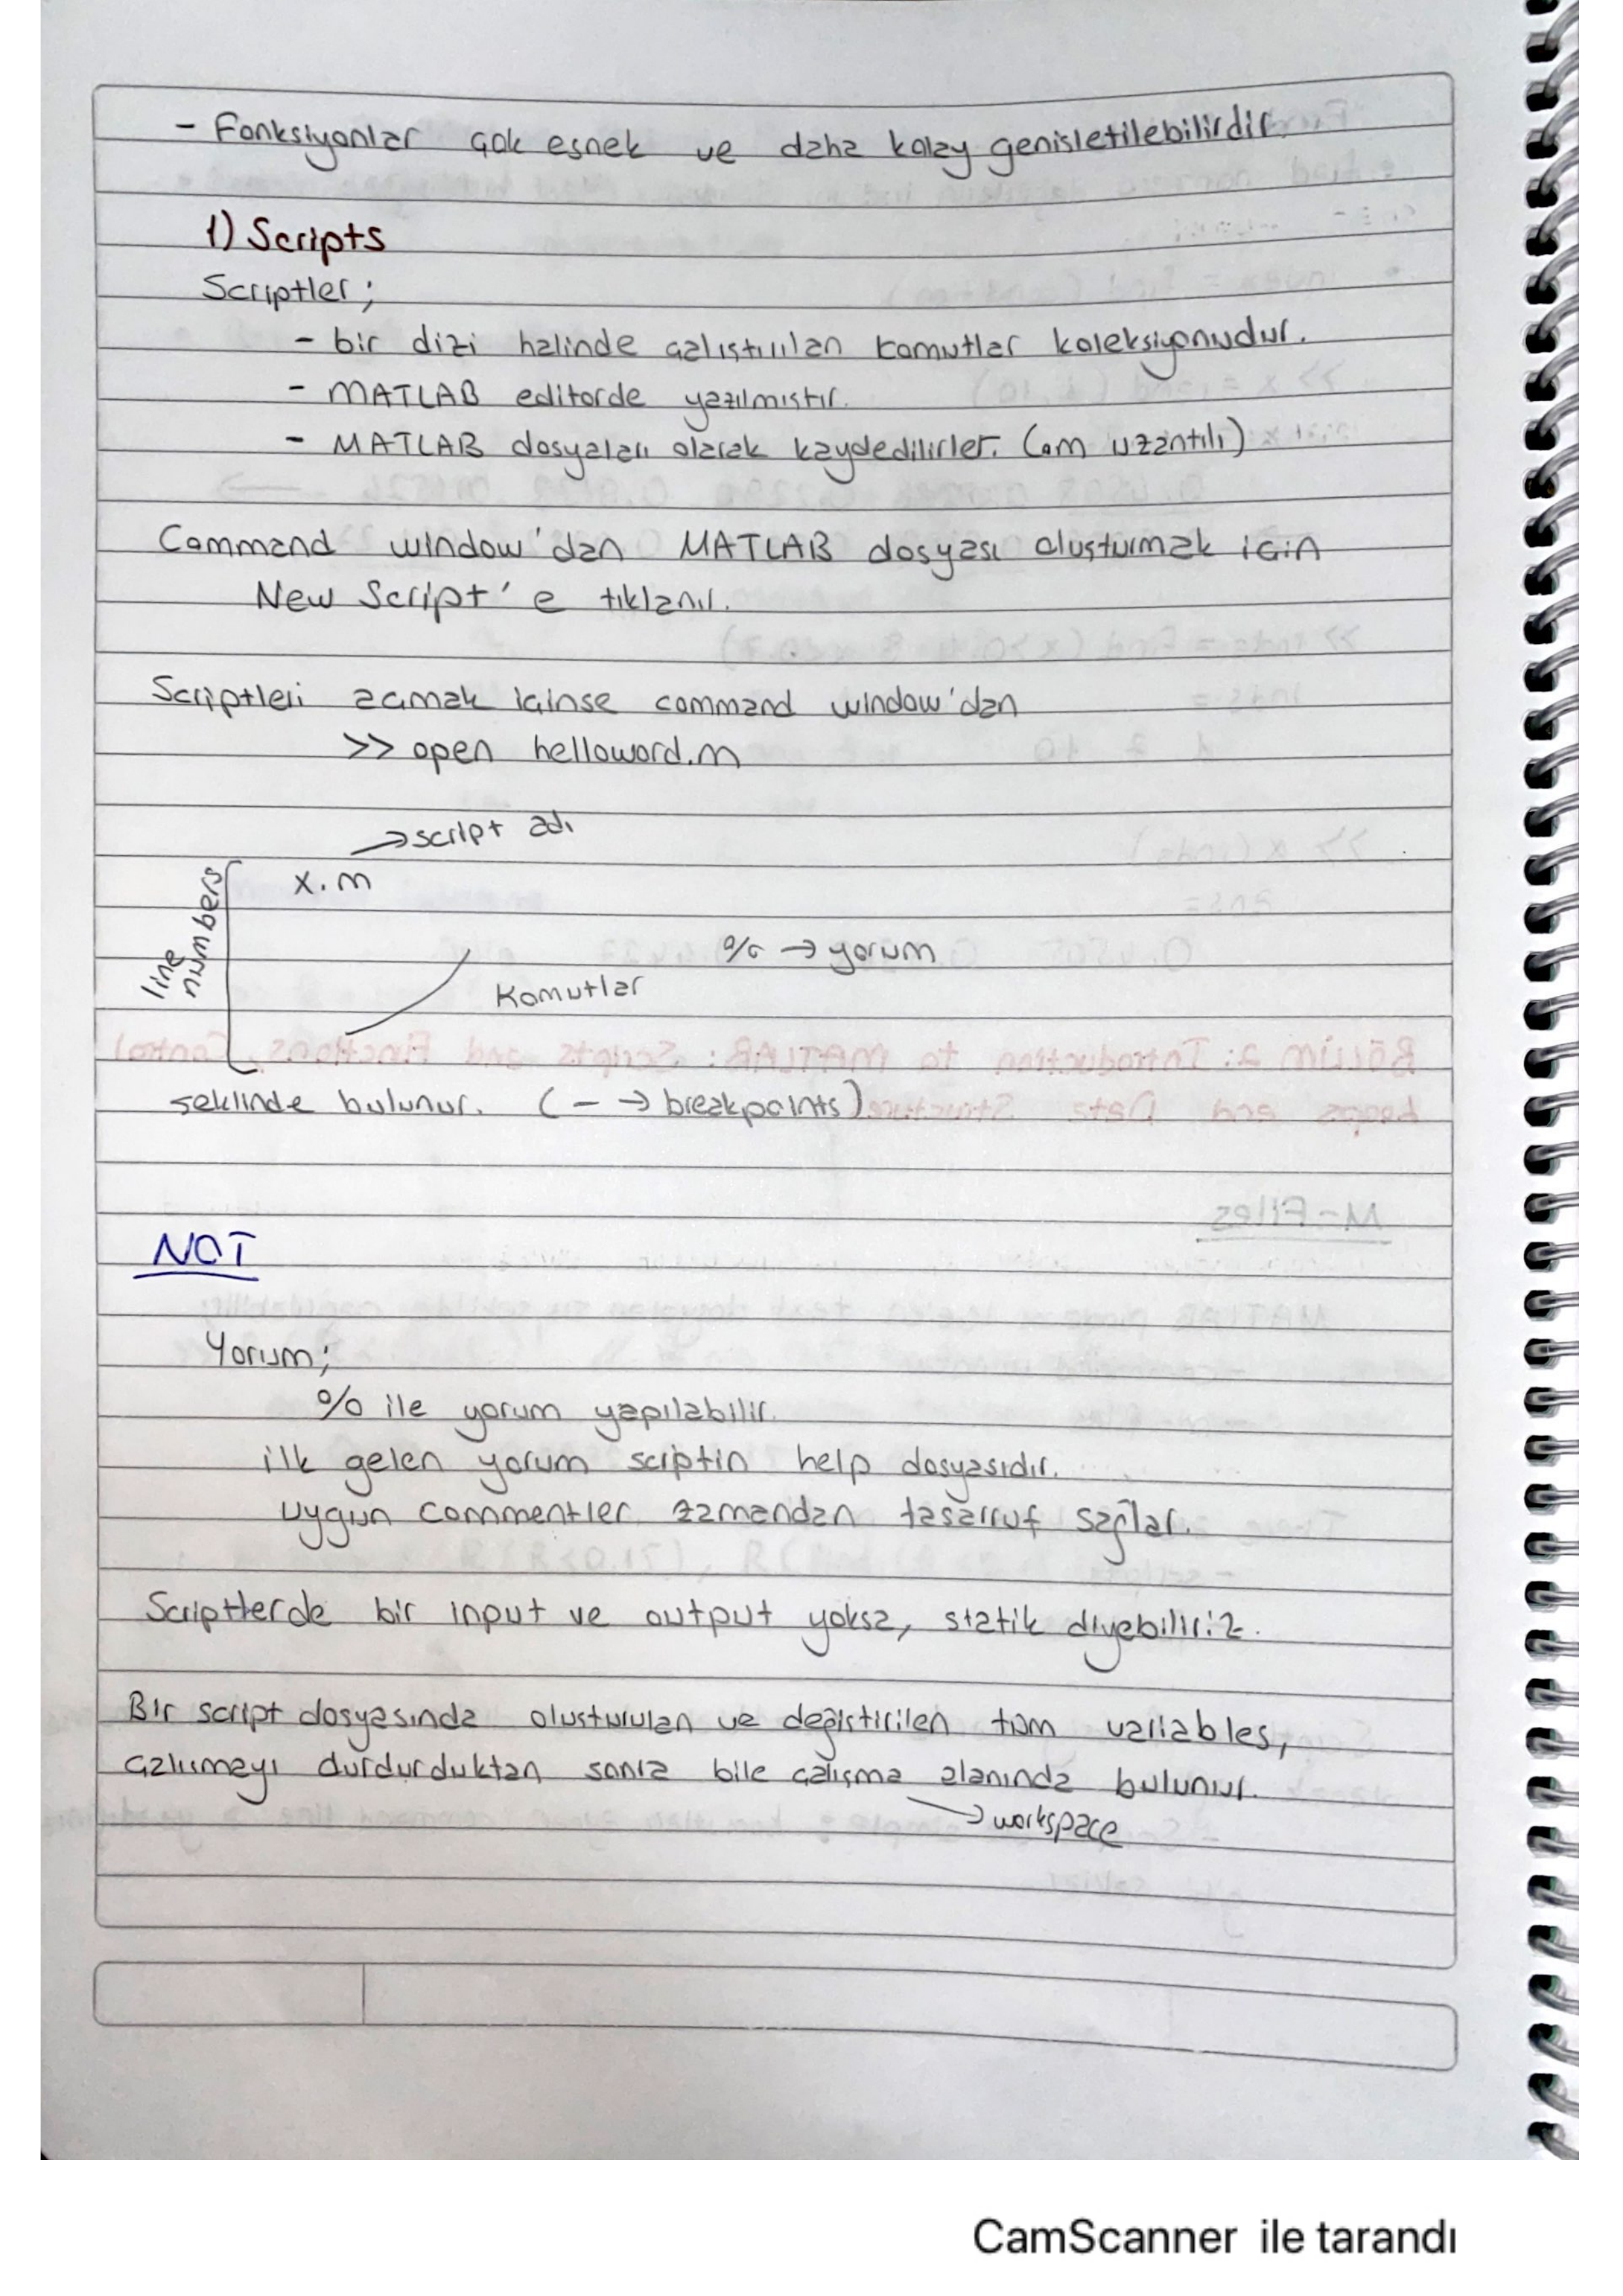 - Fonksiyonlar çok esnek ve daha kolay genisletilebilirdir.
1) Scripts
Scriptler;
- bir dizi halinde çalıştırılan komutlar koleksiyonudur.
- MATLAB editorde yazılmıstır.
- MATLAB dosyaları olarak kaydedilirler. (.m uzantılı)
Command window'dan MATLAB dosyası oluşturmak için
New Script'e tıklanır.
Scriptleri açmak içinse command window'dan
>> open helloword.m
→ script adı
x.m
line numbers
% → yorum
Komutlar
seklinde bulunur. (- → breakpoints)
NOT
Yorum;
% ile yorum yapılabilir.
ilk gelen yorum scriptin help dosyasıdır.
uygun commentler zamandan tasarruf sağlar.
Scriptlerde bir input ve output yoksa, statik diyebiliriz.
Bir script dosyasında olusturulan ve değistirilen tüm variables,
çalısmayı durdurduktan sonra bile çalışma alanında bulunur.
→ workspace
CamScanner ile tarandı